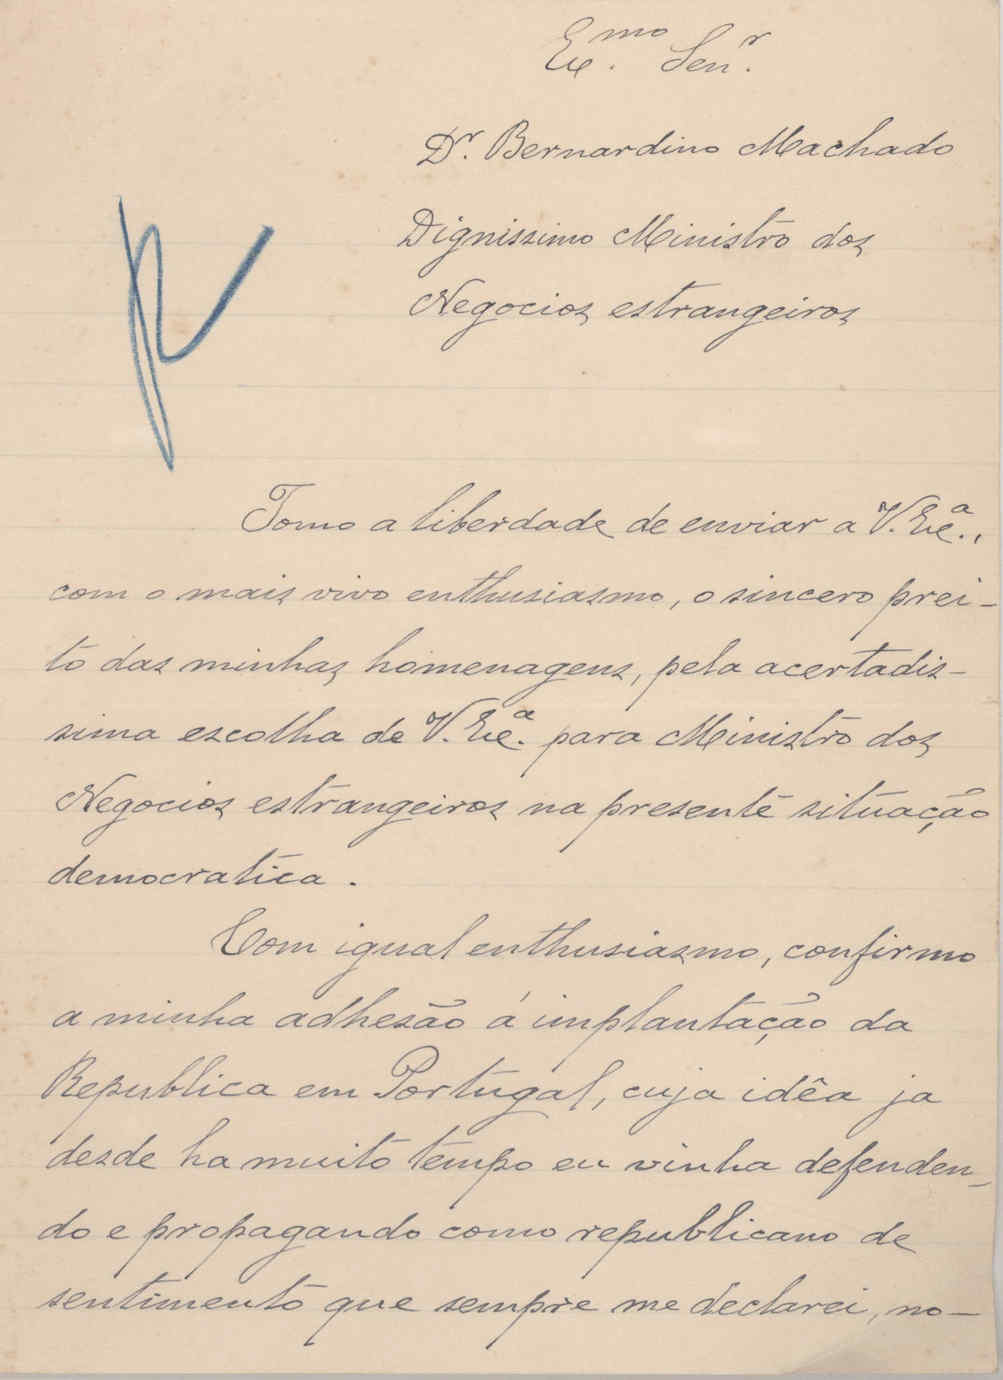 Ex.mo Sen.r
Dr. Bernardino Machado
Dignissimo Ministro dos
Negocios estrangeiros
Tomo a liberdade de enviar a V. Ex.a,
com o mais vivo enthusiasmo, o sincero prei-
to das minhas homenagens, pela acertadis-
sima escolha de V. Ex.a para Ministro dos
Negocios estrangeiros na presente situação
democratica.
Com igual enthusiasmo, confirmo
a minha adhesão á implantação da
Republica em Portugal, cuja idêa ja
desde ha muito tempo eu vinha defenden-
do e propagando como republicano de
sentimento que sempre me declarei, no-